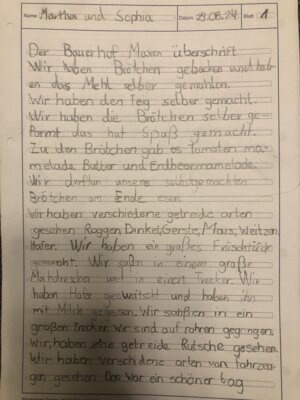 Name Martha und Sophia Datum 29.08.24 Blatt 1
Der Bauerhof Maxen überschrift
Wir haben Brötchen gebacken und hab-
en das Mehl selber gemahlen.
Wir haben den Teig selber gemacht.
Wir haben die Brötchen selber ge-
formt das hat Spaß gemacht.
Zu den Brötchen gab es Tomaten ma-
melade Butter und Erdbeermamelade.
Wir durften unsere selbstgemachten
Brötchen am Ende essen.
Wir haben verschiedene getreide arten
gesehen Roggen, Dinkel, Gerste, Mais, Weitzen,
Hafer. Wir haben ein großes Früschtück
gemacht. Wir saßn in einem große
Mähdrescher und in einem Trecker. Wir
haben Hafer gequätscht und haben ihn
mit Milch gegessen. Wir saßßen in ein
großen Trecker. Wir sind auf rohren gegangen.
Wir haben eine getreide Rutsche gesehen.
Wir haben verschidene arten von fahrzeu-
gen gesehen Das war ein schöner tag